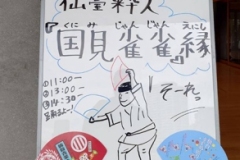 仙臺粋人
くにみ じゅんじゅん えにし
『国見雀雀縁』
①11:00〜
②13:00〜
③14:30
そーれっ